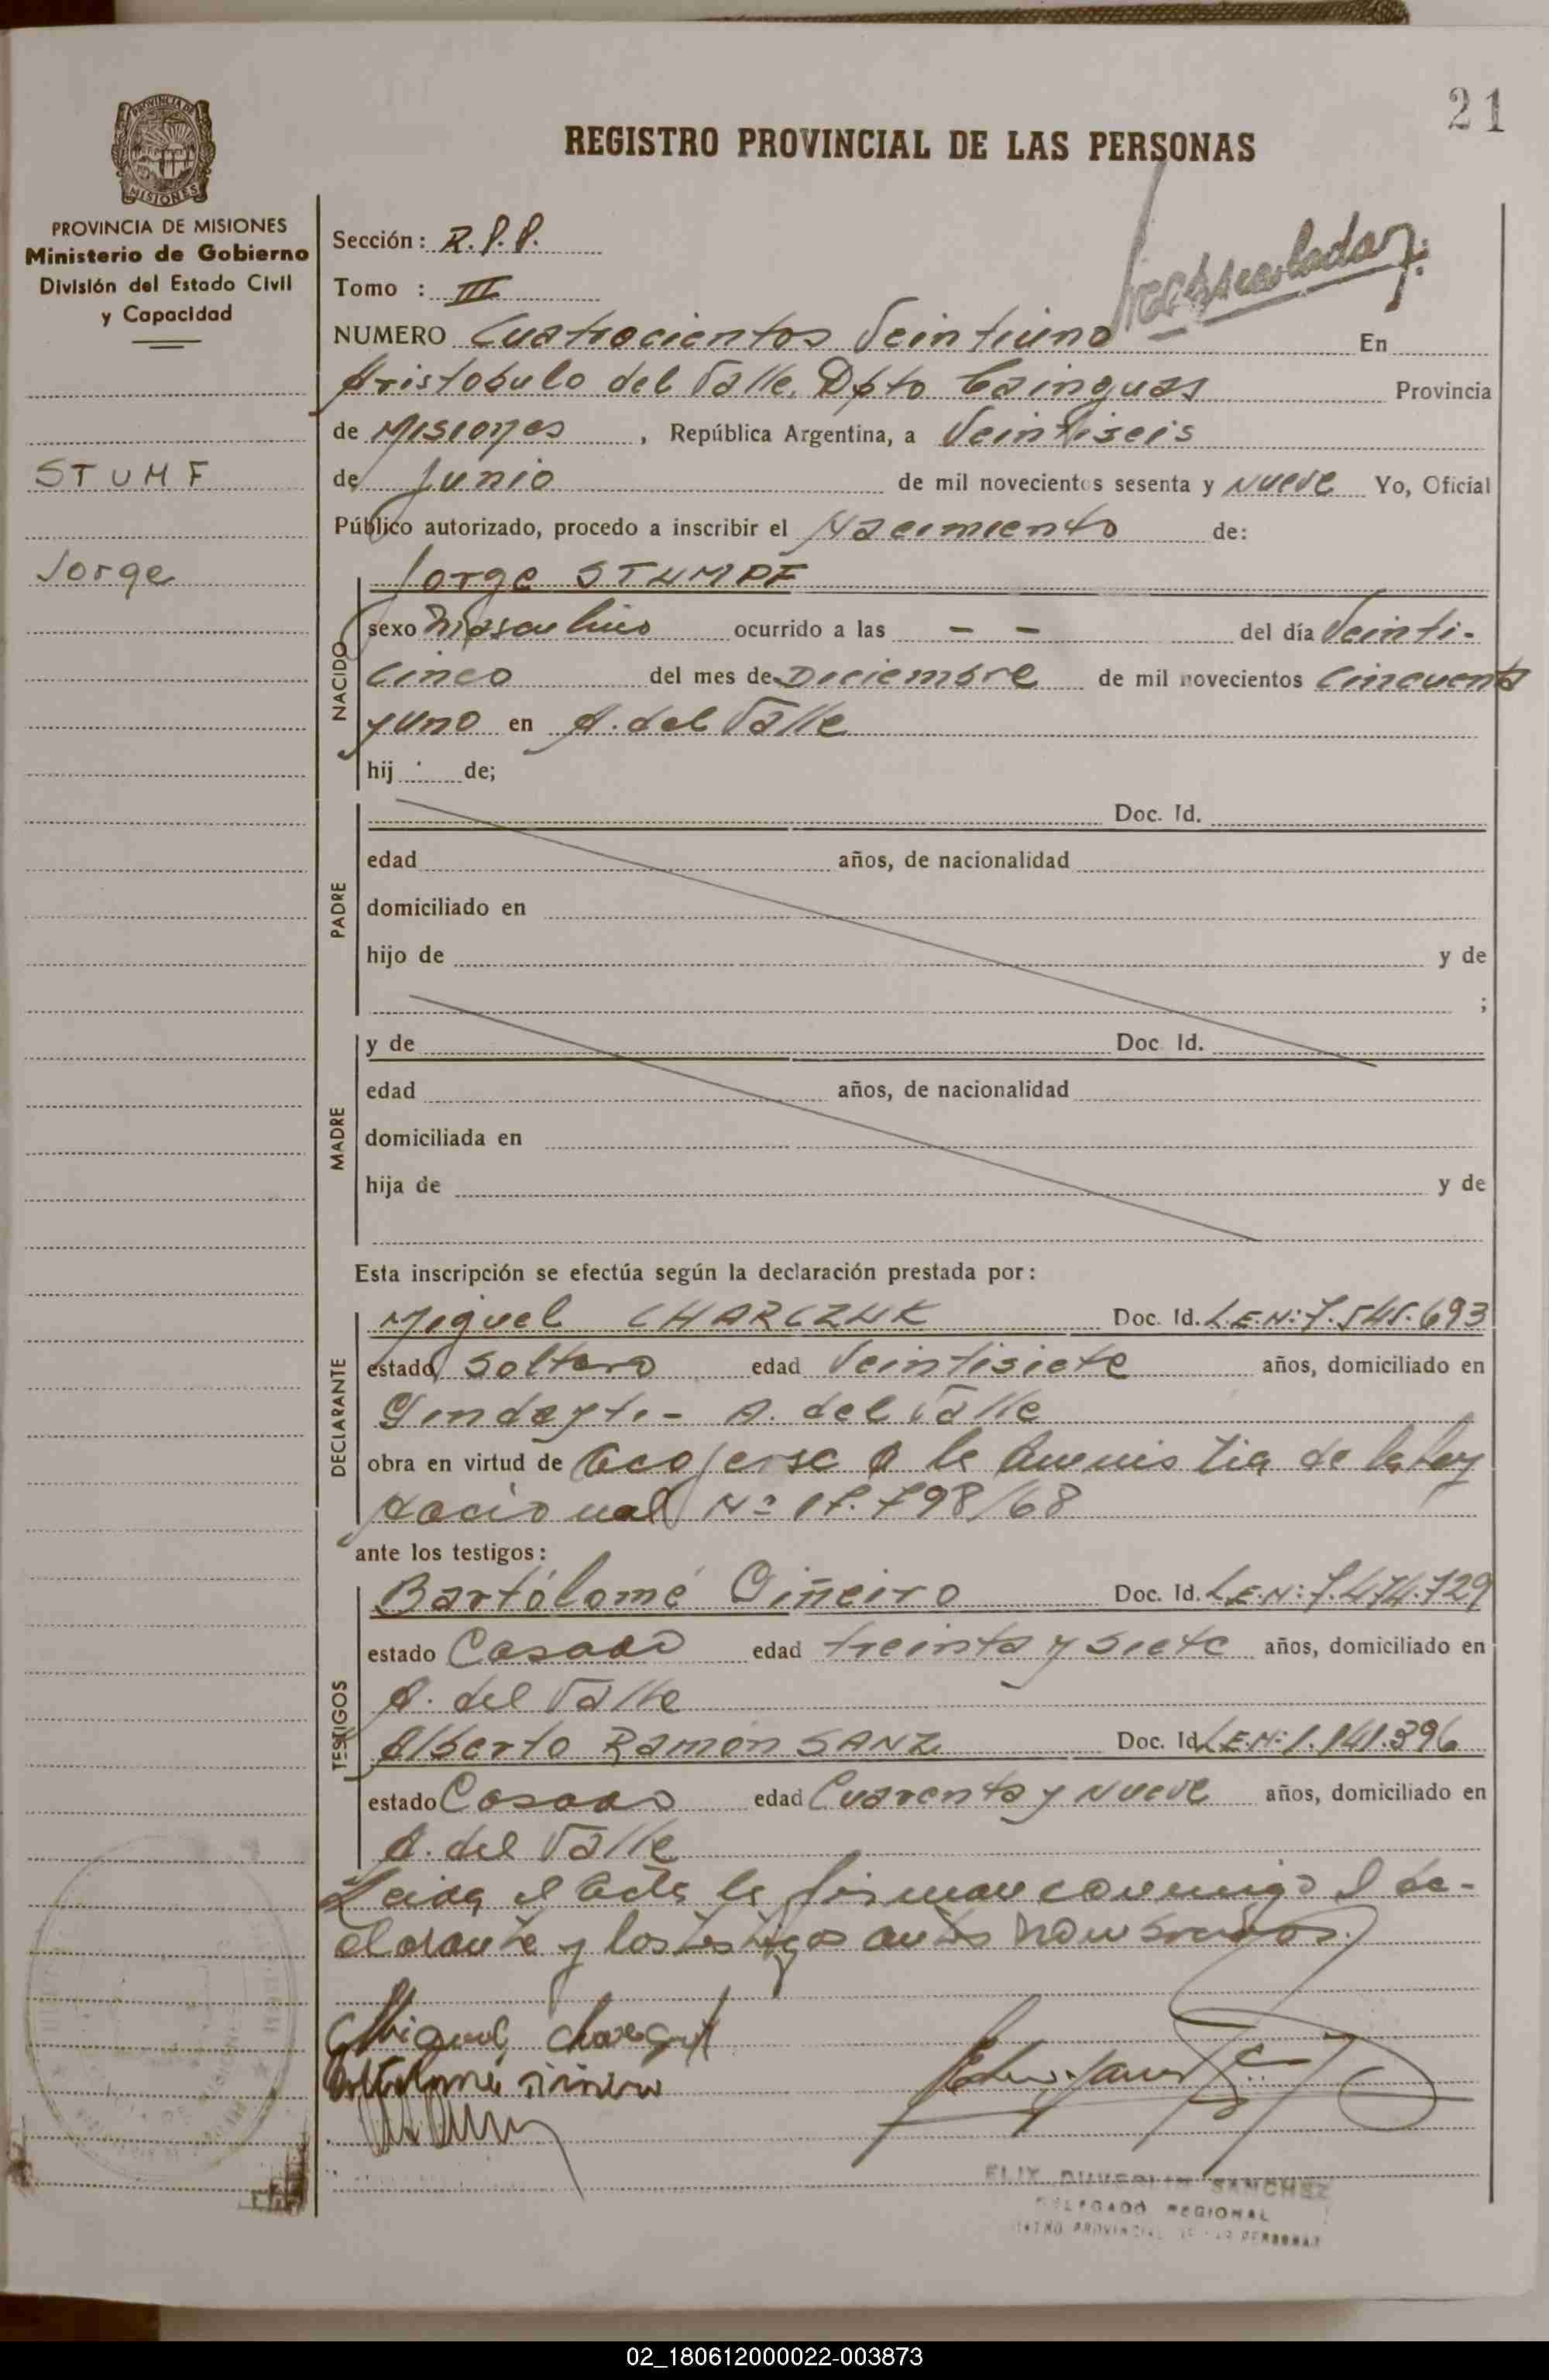 21
REGISTRO PROVINCIAL DE LAS PERSONAS
PROVINCIA DE MISIONES
Ministerio de Gobierno
División del Estado Civil
y Capacidad
STUMF
Jorge
Sección: R.P.P.
Tomo : III
NUMERO Cuatrocientos Veintiuno En
Aristobulo del Valle, Dpto Cainguas Provincia
de Misiones, República Argentina, a Veintiseis
de Junio de mil novecientos sesenta y Nueve Yo, Oficial
Público autorizado, procedo a inscribir el Nacimiento de:
NACIDO
Jorge STUMPF
sexo Masculino ocurrido a las - - del día Veinti-
cinco del mes de Diciembre de mil novecientos Cincuenta
y uno en A. del Valle
hij de;
PADRE
Doc. Id.
edad años, de nacionalidad
domiciliado en
hijo de y de
;
MADRE
y de Doc Id.
edad años, de nacionalidad
domiciliada en
hija de y de
Esta inscripción se efectúa según la declaración prestada por:
DECLARANTE
Miguel CHARCZUK Doc. Id. L.E.N: 7.545.693
estado Soltero edad Veintisiete años, domiciliado en
A. del Valle
obra en virtud de acojerse a la Amnistia de la Ley
Nacional Nº 17.798/68
ante los testigos:
TESTIGOS
Bartólomé Oiñeiro Doc. Id. L.E.N: 7.474.729
estado Casado edad treinta y siete años, domiciliado en
A. del Valle
Alberto Ramón SANZ Doc. Id. L.E.N: 1.141.396
estado Casado edad Cuarenta y Nueve años, domiciliado en
A. del Valle
Leida el Acta la firman conmigo el de-
clarante y los testigos antes nombrados.
SANCHEZ
DELEGADO REGIONAL
02_180612000022-003873